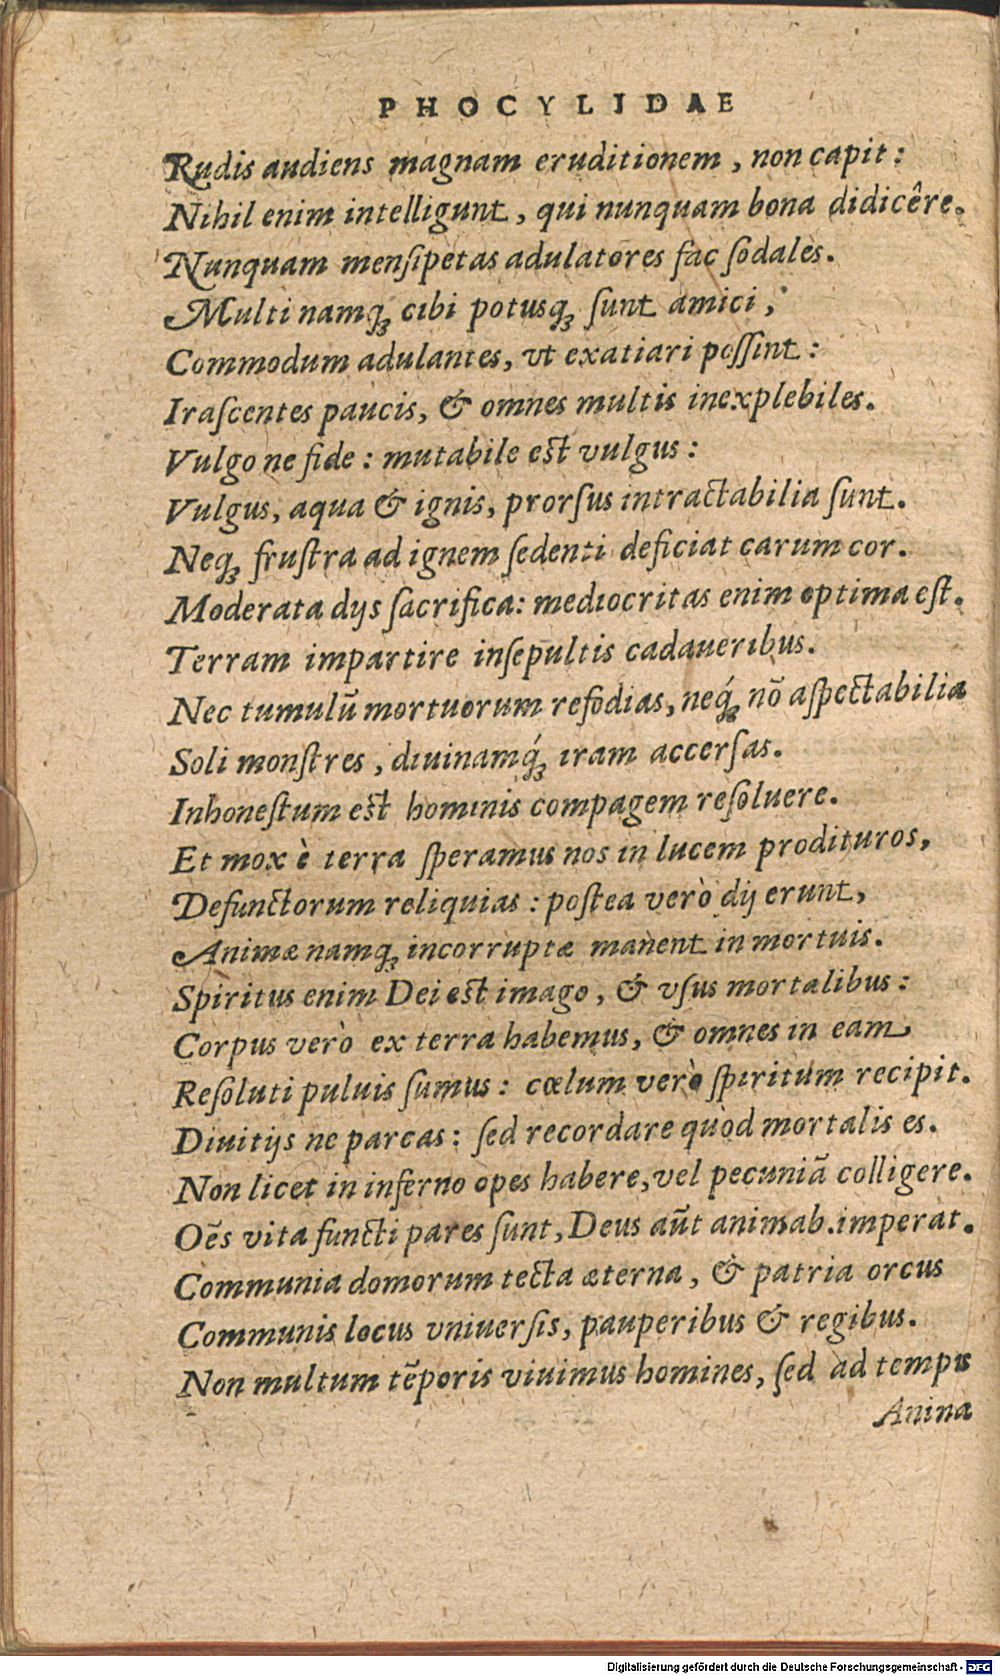 PHOCYLIDAE
Rudis audiens magnam eruditionem, non capit:
Nihil enim intelligunt, qui nunquam bona didicêre.
Nunquam mensipetas adulatores fac sodales.
Multi namq; cibi potusq; sunt amici,
Commodum adulantes, vt exatiari possint:
Irascentes paucis, & omnes multis inexplebiles.
Vulgo ne fide: mutabile est vulgus:
Vulgus, aqua & ignis, prorsus intractabilia sunt.
Neq; frustra ad ignem sedenti deficiat carum cor.
Moderata dijs sacrifica: mediocritas enim optima est.
Terram impartire insepultis cadaueribus.
Nec tumulū mortuorum refodias, neq́; nō aspectabilia
Soli monstres, diuinamq́; iram accersas.
Inhonestum est hominis compagem resoluere.
Et mox è terra speramus nos in lucem prodituros,
Defunctorum reliquias: postea verò dij erunt,
Animæ namq; incorruptæ manent in mortuis.
Spiritus enim Dei est imago, & vsus mortalibus:
Corpus verò ex terra habemus, & omnes in eam
Resoluti puluis sumus: cœlum verò spiritum recipit.
Diuitijs ne parcas: sed recordare quòd mortalis es.
Non licet in inferno opes habere, vel pecuniā colligere.
Oēs vita functi pares sunt, Deus aūt animab. imperat.
Communia domorum tecta æterna, & patria orcus
Communis locus vniuersis, pauperibus & regibus.
Non multum tēporis viuimus homines, sed ad tempus
Anina
Digitalisierung gefördert durch die Deutsche Forschungsgemeinschaft - DFG